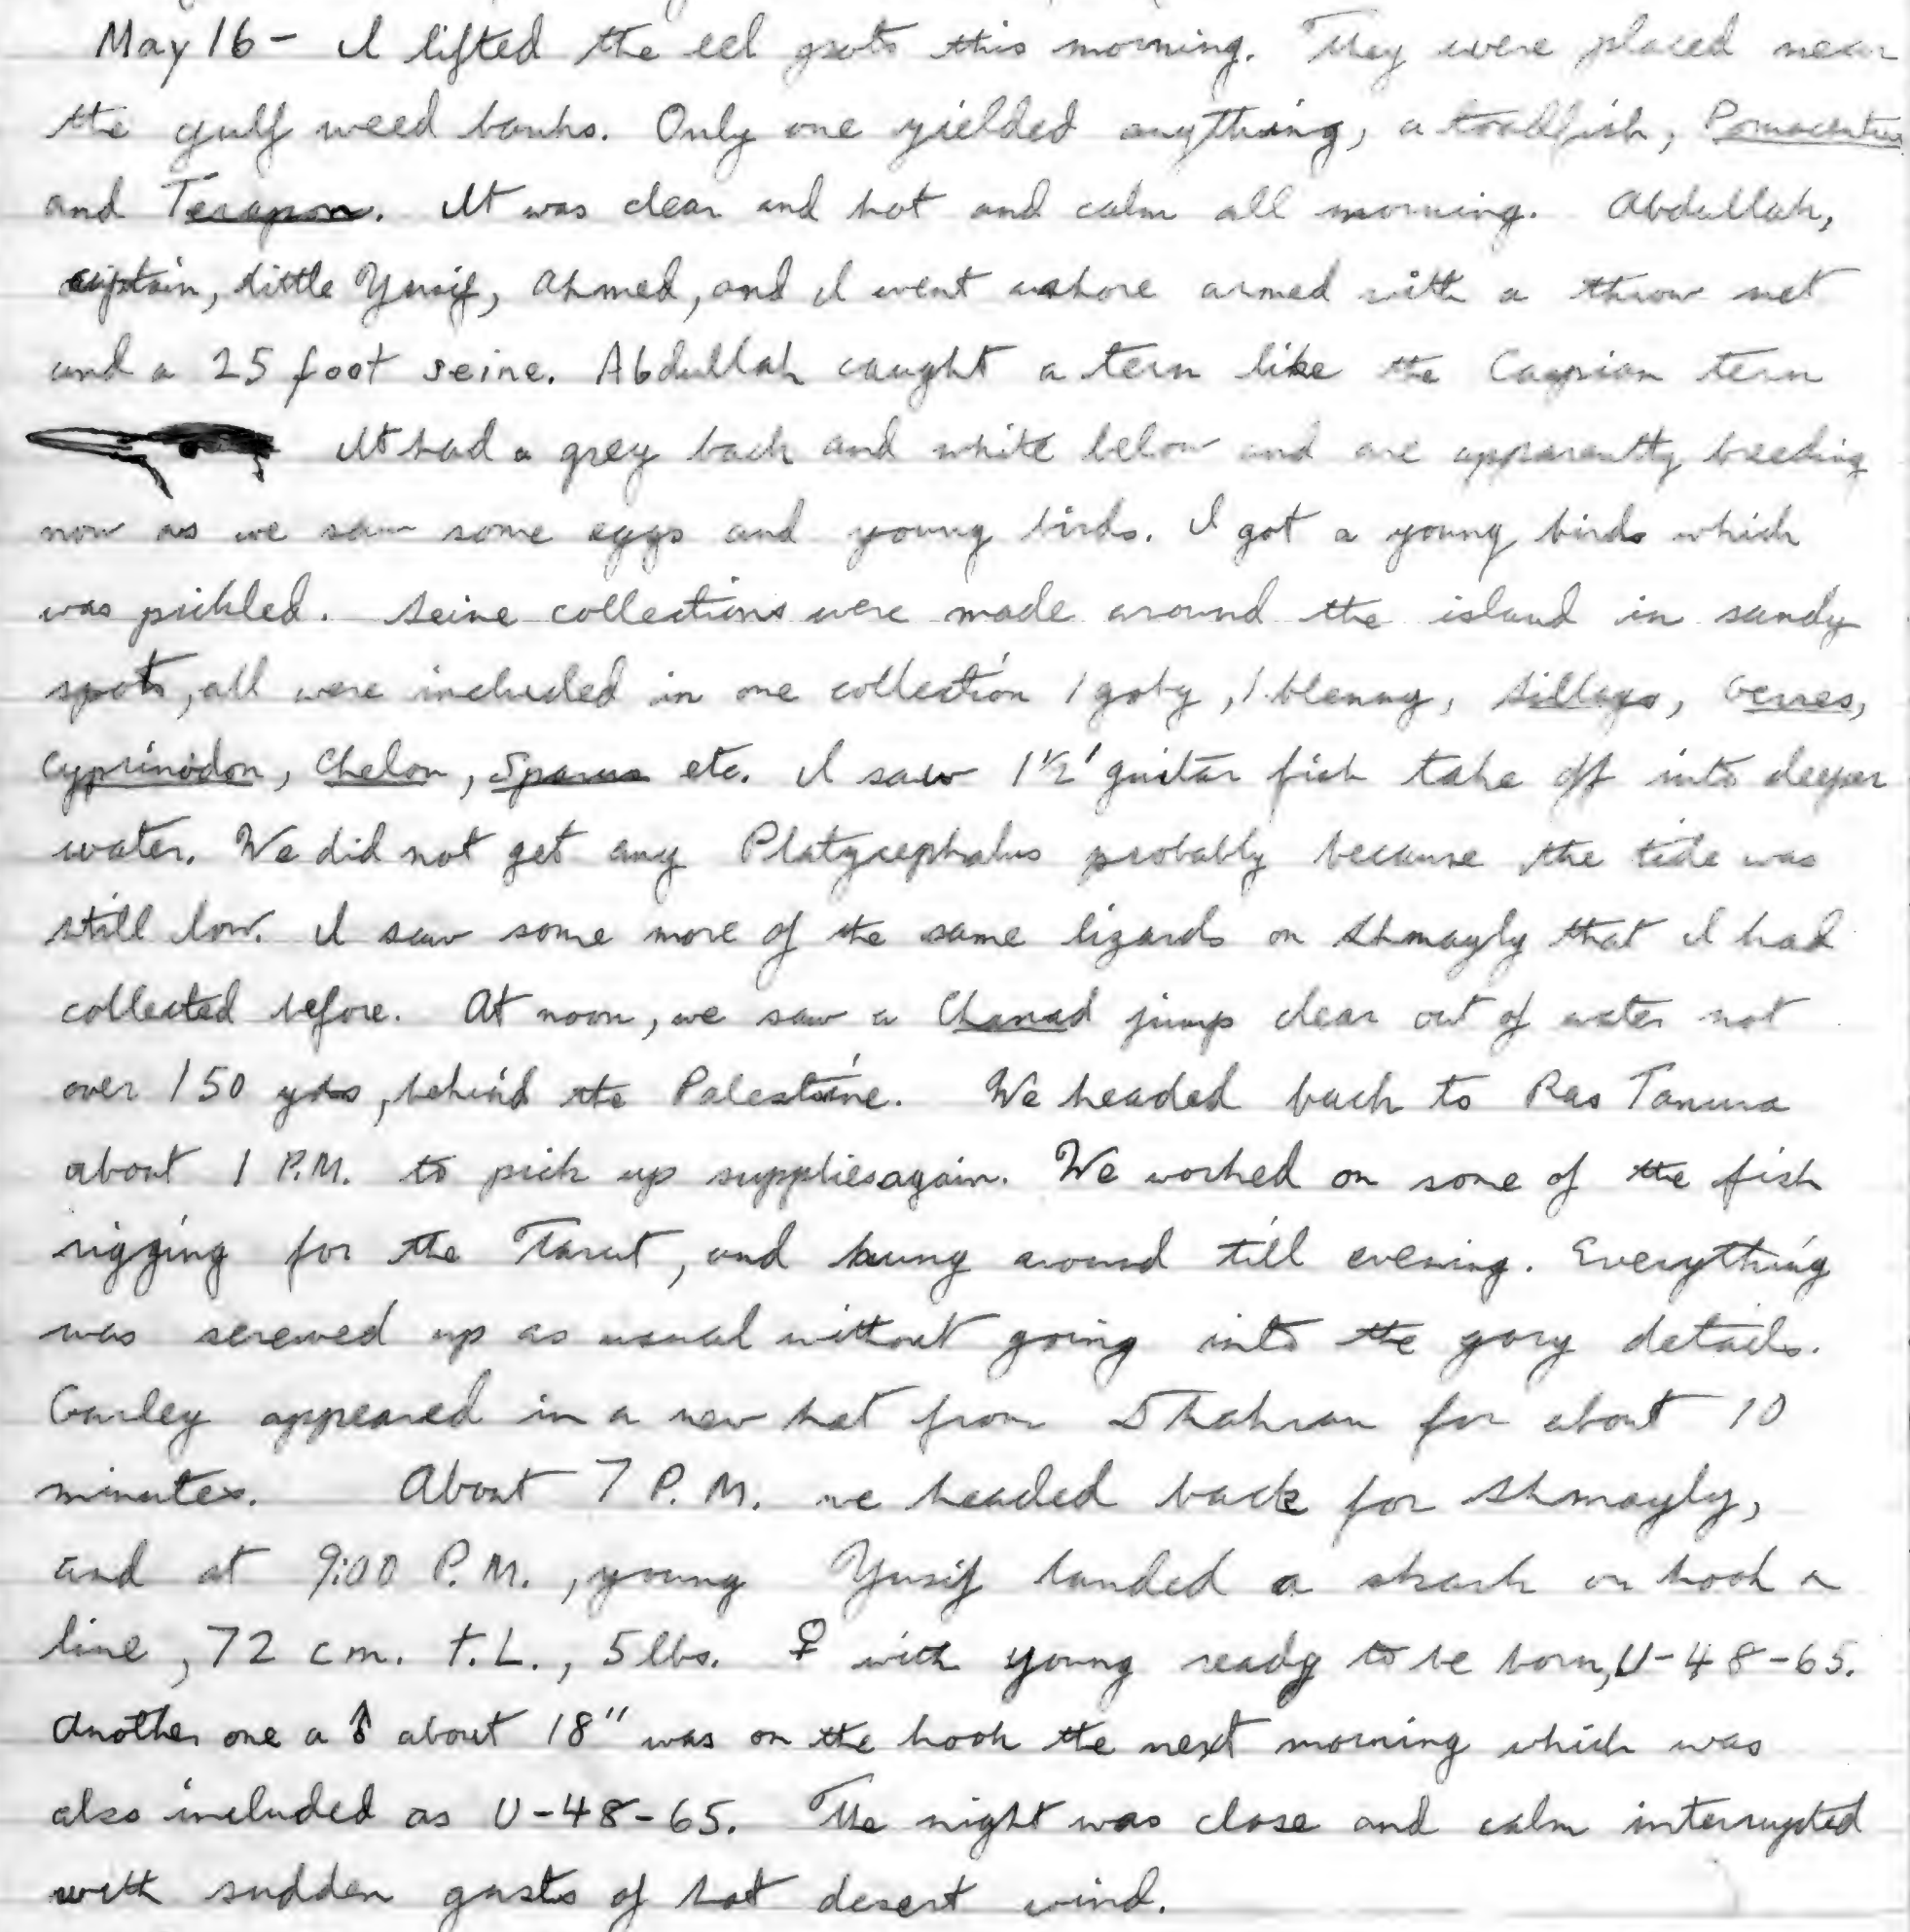 May 16 - I lifted the eel pots this morning. They were placed near
the gulf weed banks. Only one yielded anything, a toadfish, Pomacentrus
and Terapon. It was clear and hot and calm all morning. Abdullah,
captain, little Yusif, Ahmed, and I went ashore armed with a throw net
and a 25 foot seine. Abdullah caught a tern like the Caspian tern
It had a grey back and white below and are apparently breeding
now as we saw some eggs and young birds. I got a young birds which
was pickled. Seine collections were made around the island in sandy
spots, all were included in one collection 1 goby, 1 blenny, Sillago, Gerres,
Cyprinodon, Chelon, Sparus etc. I saw 1 1/2' guitar fish take off into deeper
water. We did not get any Platycephalus probably because the tide was
still low. I saw some more of the same lizards on Shmayly that I had
collected before. At noon, we saw a Chanad jump clear out of water not
over 150 yds, behind the Palestine. We headed back to Ras Tanura
about 1 P.M. to pick up supplies again. We worked on some of the fish
rigging for the Tarut, and hung around till evening. Everything
was screwed up as usual without going into the gory details.
Gurley appeared in a new hat from Dhahran for about 10
minutes. About 7 P.M. we headed back for Shmayly,
and at 9:00 P.M., young Yusif landed a shark on hook a
line, 72 cm. T.L., 5 lbs. ♀ with young ready to be born, U-48-65.
Another one a ♂ about 18" was on the hook the next morning which was
also included as U-48-65. The night was close and calm interrupted
with sudden gusts of hot desert wind.